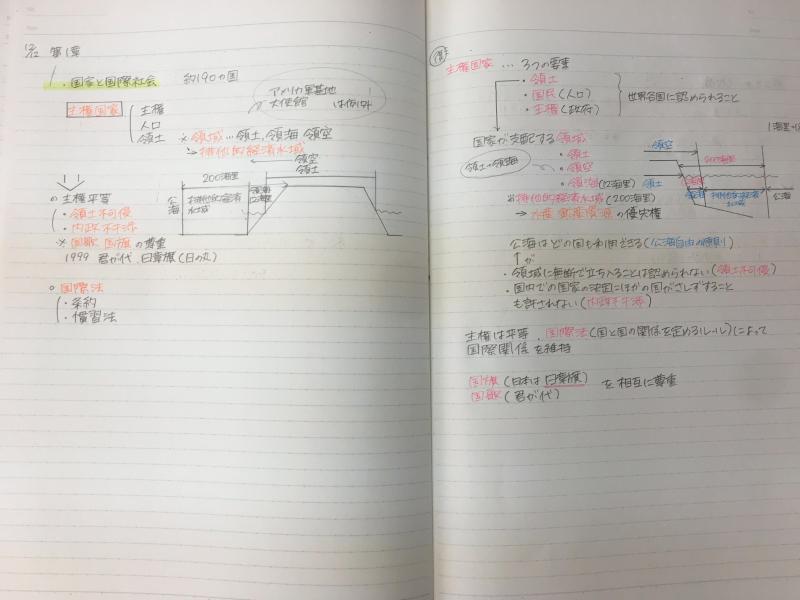 第1章
1. 国家と国際社会 約190の国
アメリカ軍基地
大使館 は例外
主権国家
主権
人口
領土 ※領域…領土, 領海 領空
→排他的経済水域
領空
領土
200海里
公海
排他的経済水域
領海
12海里
○主権平等
・領土不可侵
・内政不干渉
※国歌 国旗の尊重
1999 君が代, 日章旗(日の丸)
○国際法
・条約
・慣習法
復
主権国家 … 3つの要素
・領土
・国民(人口)
・主権(政府)
世界各国に認められること
国家が支配する領域
・領土
・領空
・領海(12海里)
領土+領海
※排他的経済水域(200海里)
→水産 鉱産資源の優先権
領空
200海里
領土
領海
排他的経済水域
公海
公海はどの国も利用できる(公海自由の原則)
↑が
・領域に無断で立ち入ることは認められない(領土不可侵)
・国内での国家の決定にほかの国がさしずすること
も許されない(内政不干渉)
主権は平等, 国際法(国と国の関係を定めるルール)によって
国際関係を維持
国旗(日本は日章旗)
国歌(君が代)
を相互に尊重